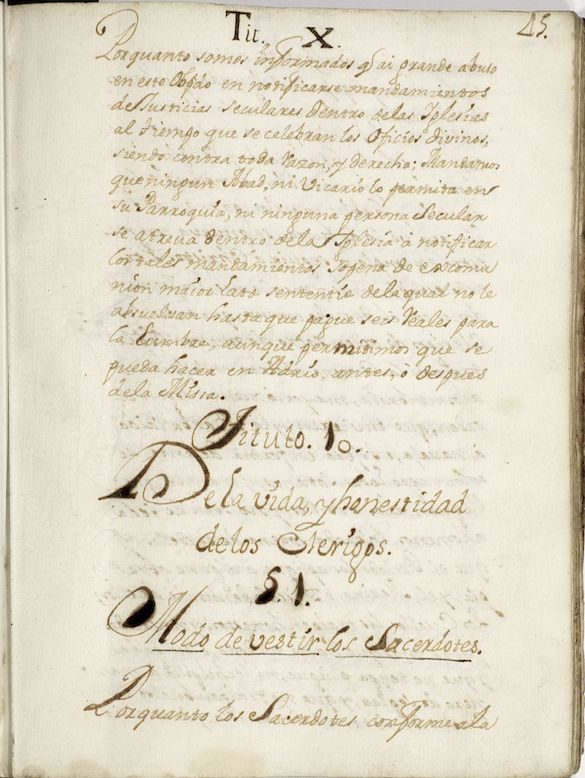 Tit. X.
45.
Porquanto somos informados q̃ ai grande abuso
en este Obpãdo en notificarse mandamientos
de Justicias seculares dentro de las Iglesias
al tiempo que se celebran los Oficios divinos,
siendo contra toda razon, y derecho; Mandamos
que ningun Abad, ni Vicario lo permita en
su Parroquia, ni ninguna persona Secular
se atreva dentro dela Iglesia à notificar
los tales mandamientos Sopena de excomu
nion maior latæ sententiæ dela qual no le
absuelvan hasta que pague seis Reales para
la Lumbre, aunque permitimos que se
pueda hacer en Adrio, antes, o despues
de la Missa.
Titulo. 10.
De la vida, y honestidad
de los Clerigos.
§. 1.
Modo de vestir los Sacerdotes.
Porquanto los Sacerdotes conforme a la